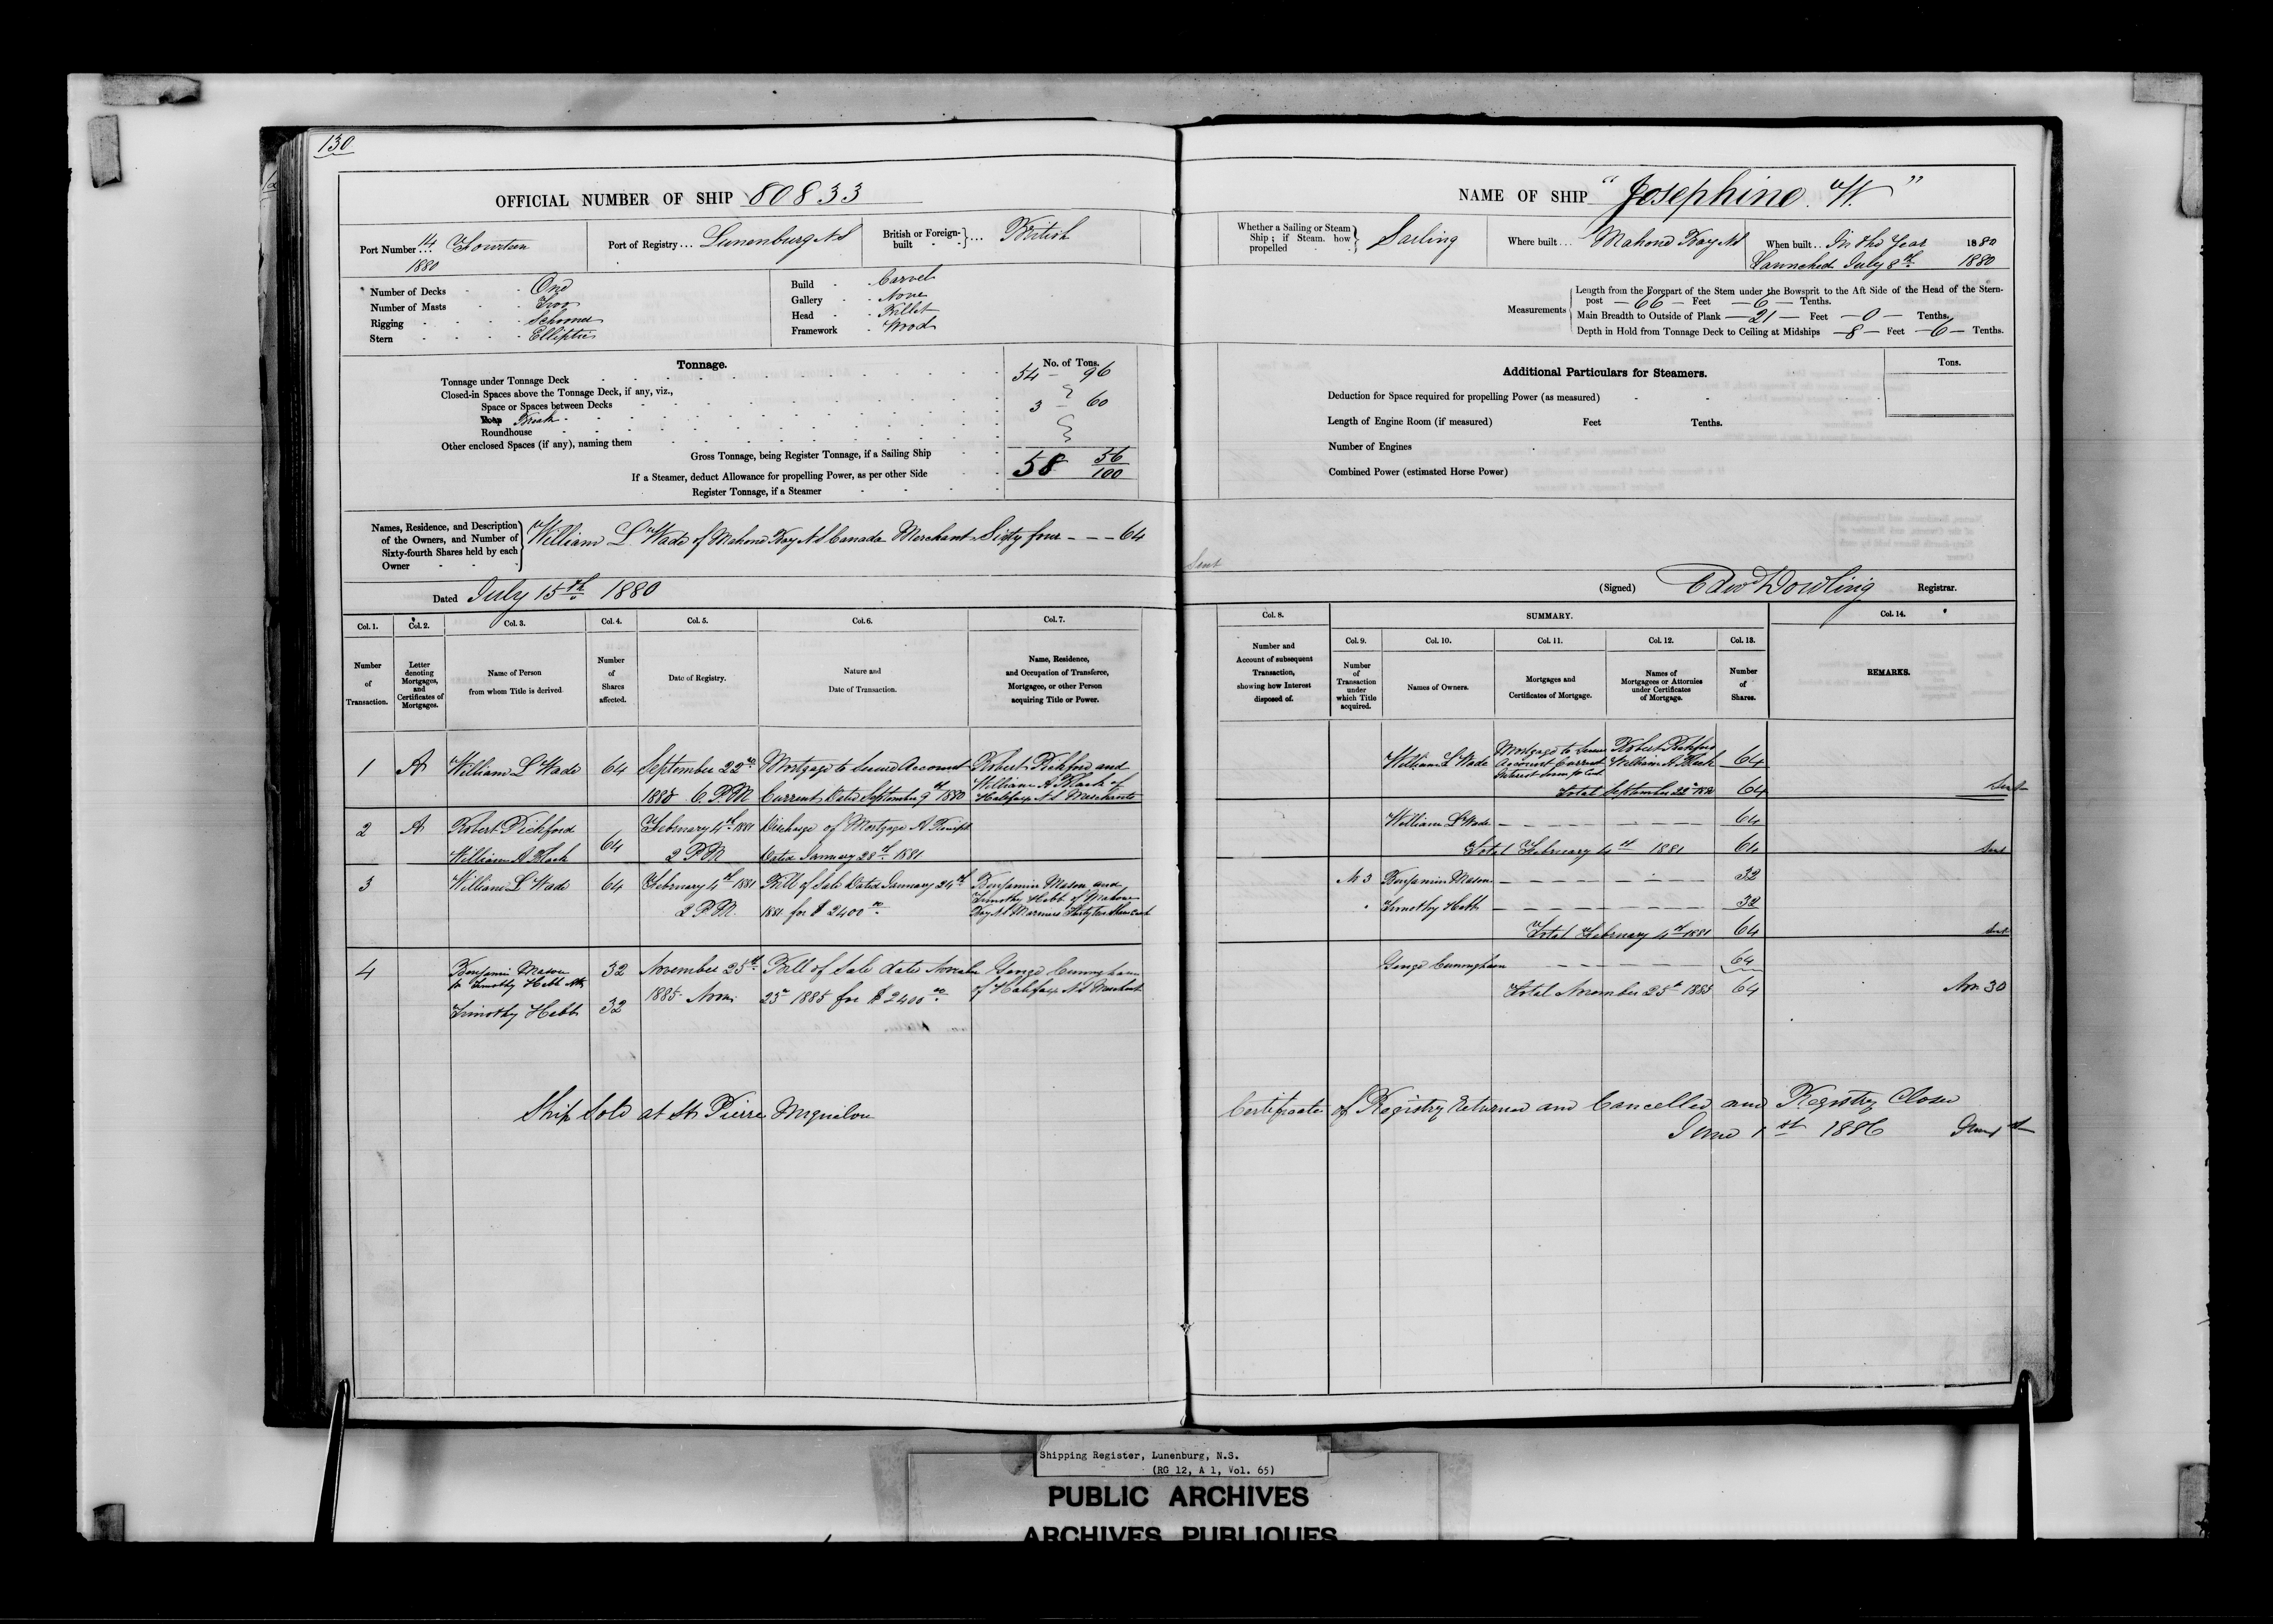 130
OFFICIAL NUMBER OF SHIP 80833
Port Number... 14 Fourteen
1880
Port of Registry... Lunenburg N S
British or Foreign-built ... British
Number of Decks - - One
Number of Masts - - Two
Rigging - - - - Schooner
Stern - - - - Elliptic
Build - Carvel
Gallery - None
Head - Billet
Framework - Wood
Tonnage.
No. of Tons.
Tonnage under Tonnage Deck 54 - 96
Closed-in Spaces above the Tonnage Deck, if any, viz.,
Space or Spaces between Decks
Poop Break 3 - 60
Roundhouse
Other enclosed Spaces (if any), naming them
Gross Tonnage, being Register Tonnage, if a Sailing Ship 58 56/100
If a Steamer, deduct Allowance for propelling Power, as per other Side
Register Tonnage, if a Steamer
Names, Residence, and Description of the Owners, and Number of Sixty-fourth Shares held by each Owner
William L Wade of Mahone Bay N S Canada Merchant Sixty four - - - 64
Dated July 15th 1880
Col. 1. Col. 2. Col. 3. Col. 4. Col. 5. Col. 6. Col. 7.
Number of Transaction.
Letter denoting Mortgages, and Certificates of Mortgages.
Name of Person from whom Title is derived
Number of Shares affected.
Date of Registry.
Nature and Date of Transaction.
Name, Residence, and Occupation of Transferee, Mortgagee, or other Person acquiring Title or Power.
1 A William L Wade 64 September 22nd Mortgage to Secure Account Robert Pickford and
1880 6 P.M Current Dated September 9th 1880 William A Black of
Halifax N S Merchants
2 A Robert Pickford 64 February 4th 1881 Discharge of Mortgage A
William A Black 2 P M Dated January 28th 1881
3 William L Wade 64 February 4th 1881 Bill of Sale Dated January 24th Benjamin Mason and
2 P.M. 1881 for $ 2400 00 Timothy Hebb of Mahone
Bay N S Mariners Thirty two Shares each
4 Benjamin Mason 32 November 25th Bill of Sale dated November George Cunningham
Timothy Hebb
Timothy Hebb 32 1885 Noon 25th 1885 for $ 2400 00 of Halifax N S Merchant
Ship Sold at St Pierre Miquelon
NAME OF SHIP "Josephine. W."
Whether a Sailing or Steam Ship; if Steam. how propelled Sailing
Where built... Mahone Bay N S
When built.. In the Year 1880
Launched July 8th 1880
Measurements
Length from the Forepart of the Stem under the Bowsprit to the Aft Side of the Head of the Stern-
post - 66 - Feet - 6 - Tenths.
Main Breadth to Outside of Plank - 21 - Feet - 0 - Tenths.
Depth in Hold from Tonnage Deck to Ceiling at Midships - 8 - Feet - 6 - Tenths.
Additional Particulars for Steamers.
Tons.
Deduction for Space required for propelling Power (as measured)
Length of Engine Room (if measured) Feet Tenths.
Number of Engines
Combined Power (estimated Horse Power)
Sent
(Signed) Edwd Dowling Registrar.
Col. 8. SUMMARY. Col. 14.
Col. 9. Col. 10. Col. 11. Col. 12. Col. 13.
Number and Account of subsequent Transaction, showing how Interest disposed of.
Number of Transaction under which Title acquired.
Names of Owners.
Mortgages and Certificates of Mortgage.
Names of Mortgagees or Attornies under Certificates of Mortgage.
Number of Shares.
REMARKS.
William L Wade Mortgage to Secure Robert Pickford 64
Account Current William A Black
Total September 22nd 1880 64 Sent
William L Wade 64
Total February 4th 1881 64 Sent
No 3 Benjamin Mason 32
Timothy Hebb 32
Total February 4th 1881 64 Sent
George Cunningham 64
Total November 25th 1885 64 Nov 30
Certificate of Registry returned and Cancelled and Registry Closed
June 1st 1886 June 1st
Shipping Register, Lunenburg, N.S.
(RG 12, A 1, Vol. 65)
PUBLIC ARCHIVES
ARCHIVES PUBLIQUES